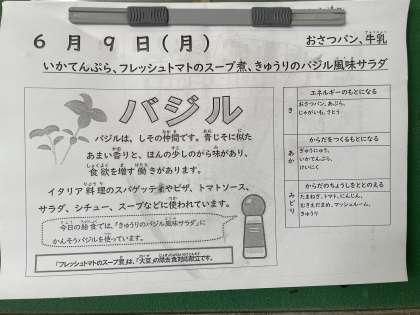 6月9日(月)
おさつパン、牛乳
いかてんぷら、フレッシュトマトのスープ煮、きゅうりのバジル風味サラダ
バジル
バジルは、しその仲間です。青じそに似た
あまい香りと、ほんの少しのから味があり、
食欲を増す働きがあります。
イタリア料理のスパゲッテぃやピザ、トマトソース、
サラダ、シチュー、スープなどに使われています。
今日の給食では、「きゅうりのバジル風味サラダ」に
かんそうバジルを使っています。
「フレッシュトマトのスープ煮」は、「大豆」の除去食対応献立です。
エネルギーのもとになる
き
おさつパン、あぶら、
じゃがいも、さとう
からだをつくるもとになる
あか
ぎゅうにゅう、
いかてんぷら、
けいにく
からだのちょうしをととのえる
みどり
たまねぎ、トマト、にんじん、
むきえだまめ、マッシュルーム、
きゅうり